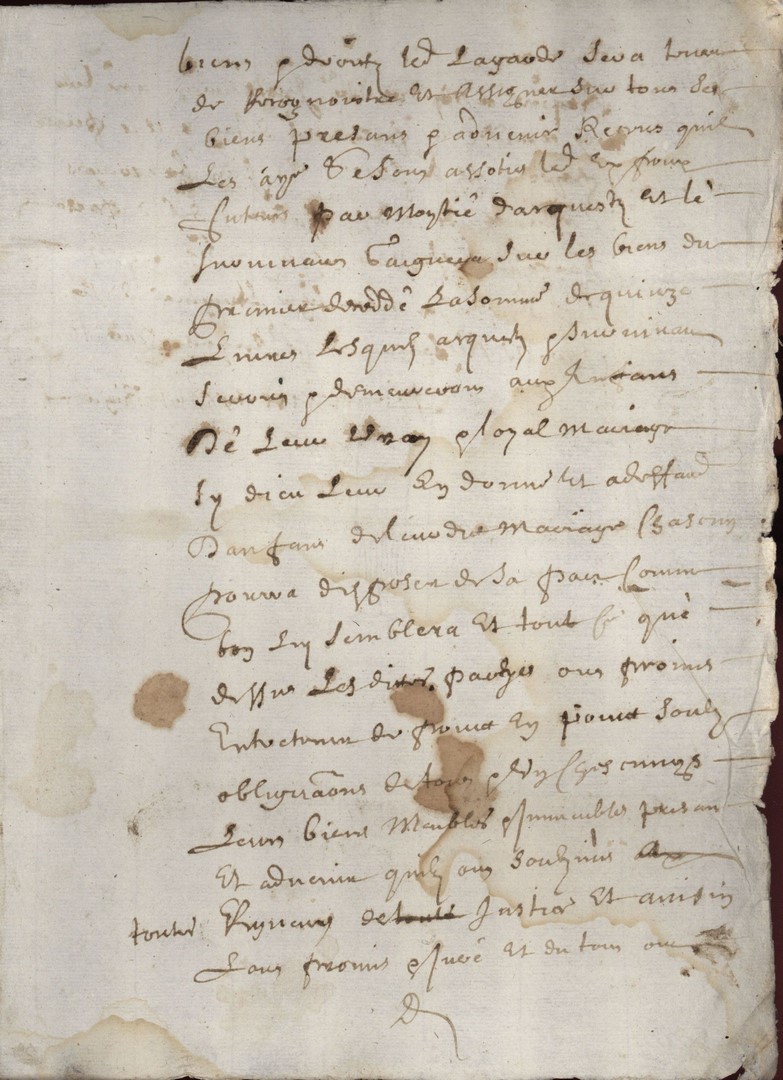 biens p droitz led Lagarde sera tenu
de Recognoistre Et assigner sur tous ses
biens presans p aduenir Receus quil
Les aye Et sont assotiés led Expoux
futeurs par Moytié d'acquestz Et le
suruiuant gaignera sur les biens du
premier decedé La somme de quinze
Liures Lesquelz acquestz p suruiuan
seront p demeureront aux Enfans
Dé Leur vray p loyal Mariage
sy dieu Leur En donne Et a deffaud
Danfans de leurdit Mariage Chascung
pourra disposer de sa part Comme
bon Luy semblera Et tout ce qué
dessus Les dites partyes ont promis
Entretenir de point En point soubz
obligations de tous p Ung Chescungs
Leurs biens Meubles p Immeubles presan
Et aduenir quilz ont soubzmis
toutes Rigueurs de Justice Et ainsin
L'ont promis p Juré Et du tout